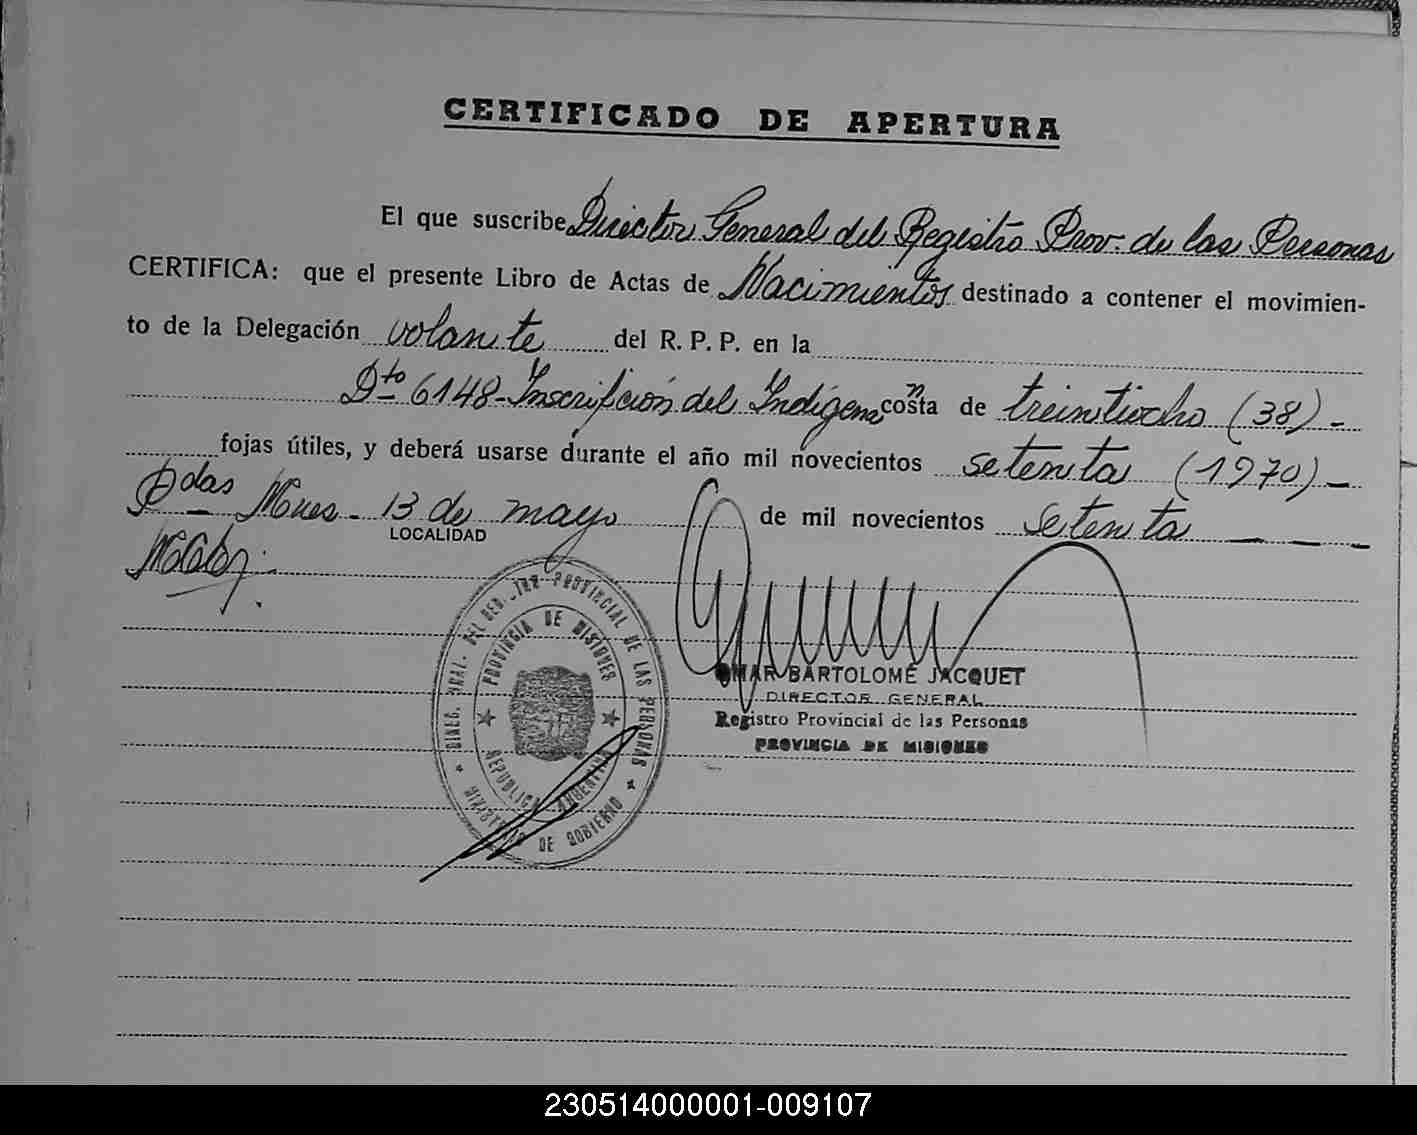 CERTIFICADO DE APERTURA
El que suscribe Director General del Registro Prov. de las Personas
CERTIFICA: que el presente Libro de Actas de Nacimientos destinado a contener el movimien-
to de la Delegación volante del R. P. P. en la
Dto 6148-Inscripción del Indígena consta de treintiocho (38) -
fojas útiles, y deberá usarse durante el año mil novecientos setenta (1970) -
Pdas Mnes - 13 de mayo de mil novecientos setenta - - -
LOCALIDAD
OMAR BARTOLOME JACQUET
DIRECTOR GENERAL
Registro Provincial de las Personas
PROVINCIA DE MISIONES
PROVINCIAL DE LAS PERSONAS
MINISTERIO DE GOBIERNO
PROVINCIA DE MISIONES
REPUBLICA ARGENTINA
230514000001-009107